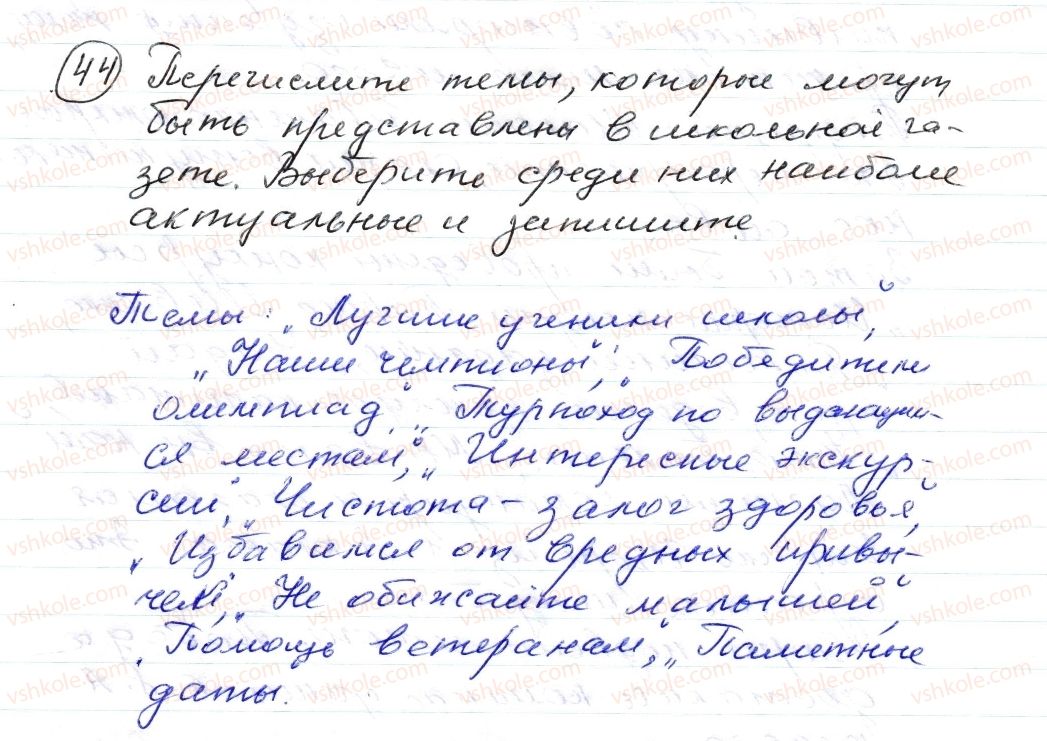 44 Перечислите темы, которые могут
быть представлены в школьной га-
зете. Выберите среди них наиболее
актуальные и запишите.
Темы: „Лучшие ученики школы“,
„Наши чемпионы“, „Победители
олимпиад“, „Турпоход по выдающим-
ся местам“, „Интересные экскур-
сии“, „Чистота – залог здоровья“,
„Избавимся от вредных привы-
чек“, „Не обижайте малышей“,
„Помощь ветеранам“, „Памятные
даты.